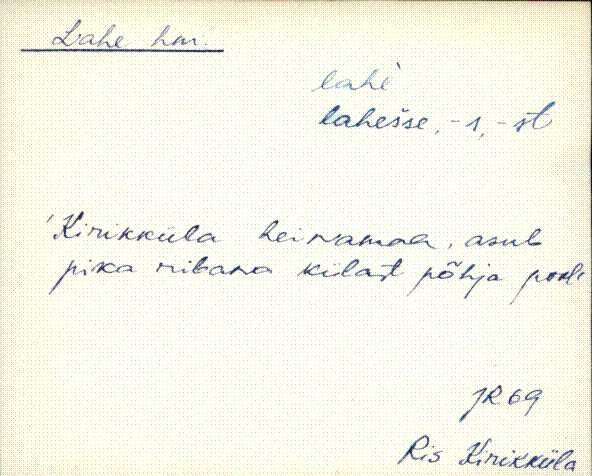 Lahe hm.
lahè
lahešse, -s, -st
'Kirikküla heinamaa, asub
pika ribana külast põhja pool
JR 69
Ris Kirikküla